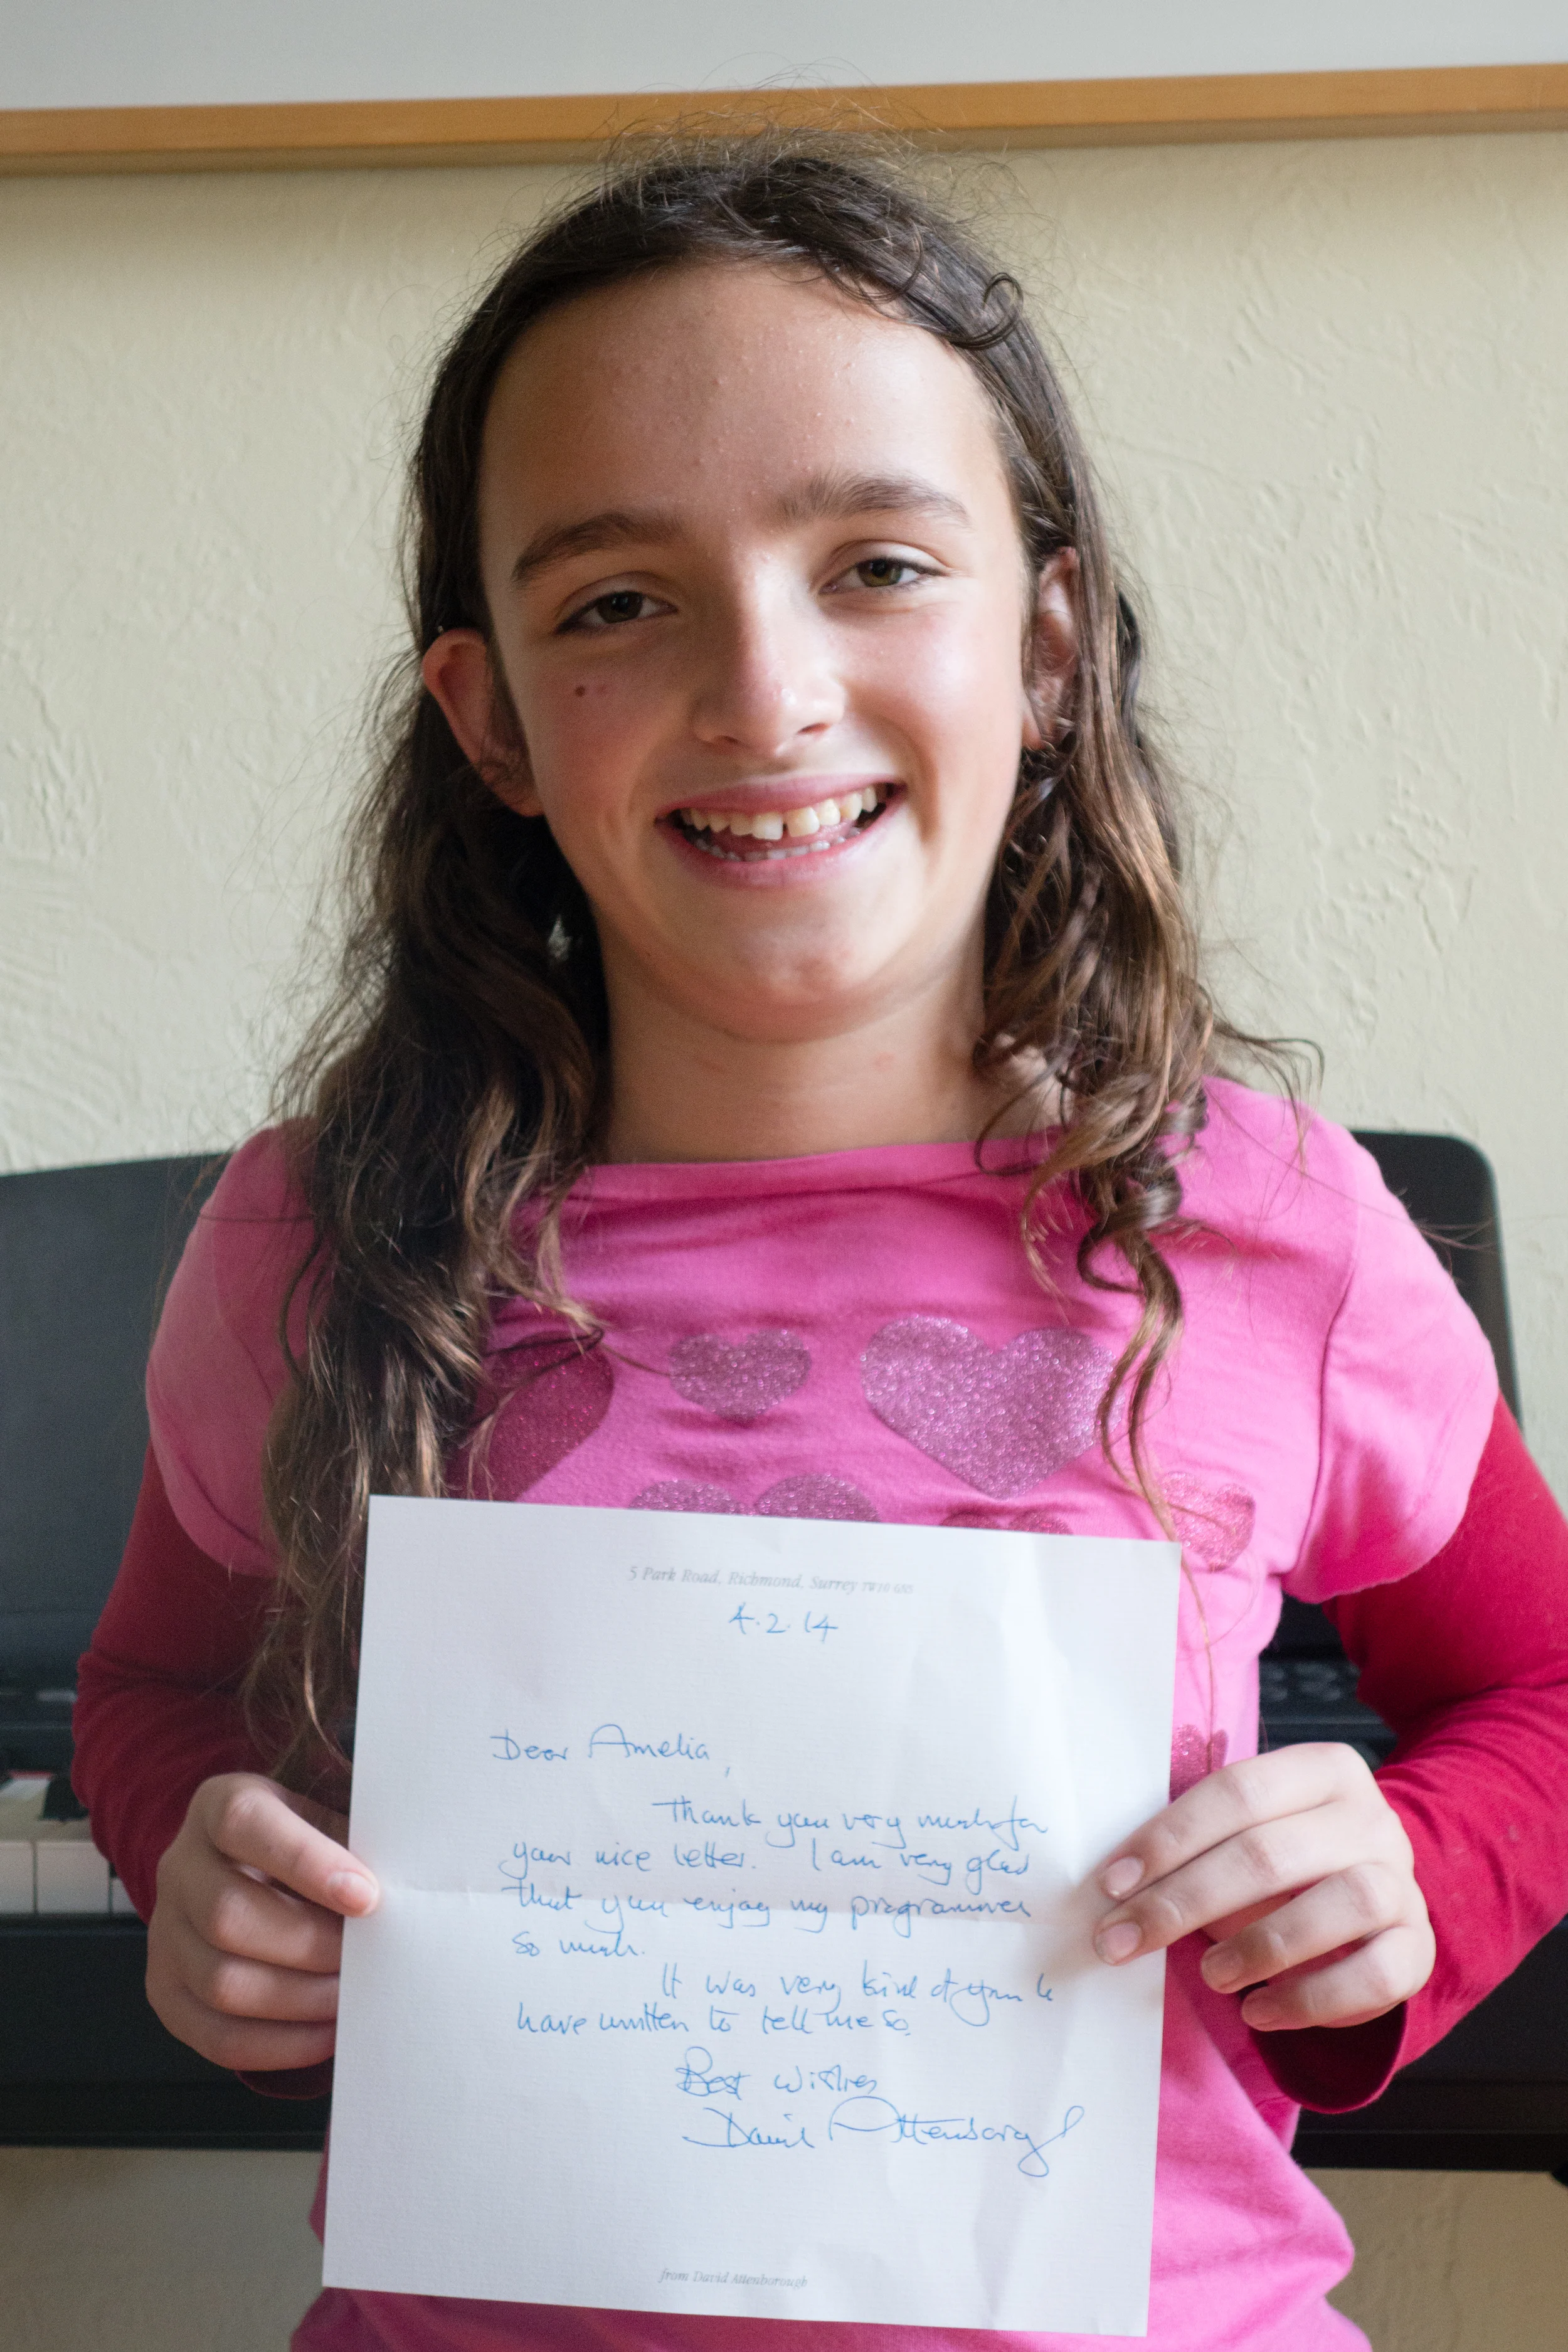 5 Park Road, Richmond, Surrey TW10 6NS
4.2.14
Dear Amelia,
Thank you very much for
your nice letter. I am very glad
that you enjoy my programmes
so much.
It was very kind of you to
have written to tell me so.
Best wishes
David Attenborough
from David Attenborough